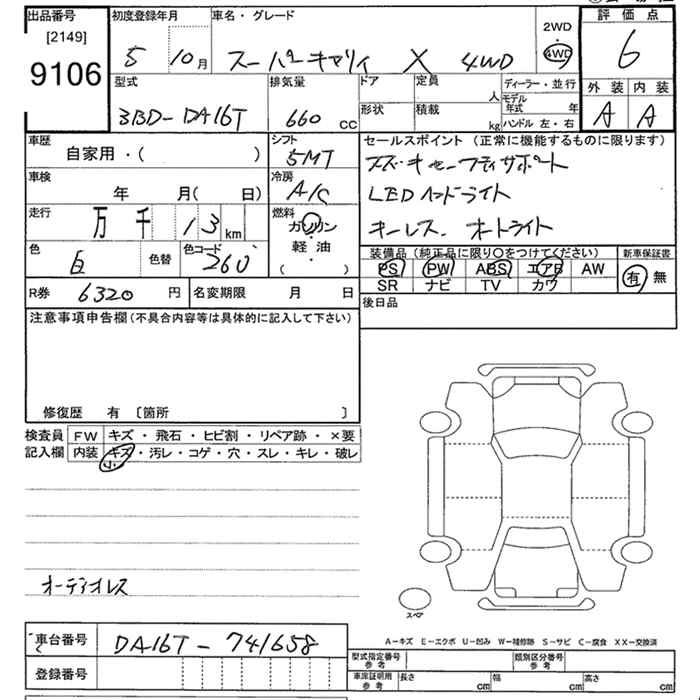 出品番号
[2149]
9106
初度登録年月
5 10月
車名・グレード
スーパーキャリィ X 4WD
2WD
4WD
評価点
6
外装 内装
A A
型式
3BD-DA16T
排気量
660 cc
ドア
形状
定員 人
積載 kg
ディーラー・並行
モデル年式 年
ハンドル 左・右
車歴
自家用・( )
シフト
5MT
セールスポイント (正常に機能するものに限ります)
スズキセーフティサポート
LEDヘッドライト
キーレス. オートライト
車検
年 月( 日)
冷房
A/C
走行
万 千 13 km
燃料
ガソリン
・
軽油
( )
色
白
色替
色コード
260
装備品 (純正品に限り○をつけてください)
PS PW ABS エアB AW
SR ナビ TV カワ
新車保証書
有 無
R券 6320 円
名変期限 月 日
後日品
注意事項申告欄(不具合内容等は具体的に記入して下さい)
修復歴 有 〔箇所 〕
検査員記入欄
FW キズ・飛石・ヒビ割・リペア跡・×要
内装 キズ・汚レ・コゲ・穴・スレ・キレ・破レ
小
オーディオレス
スペア
車台番号 DA16T-741658
登録番号
A-キズ E-エクボ U-凹み W-補修跡 S-サビ C-腐食 XX-交換済
型式指定番号 参考
類別区分番号 参考
車庫証明用 参考
長さ cm 幅 cm 高さ cm